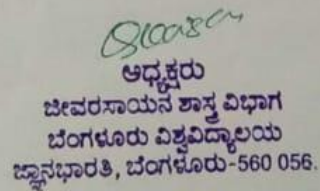 ಅಧ್ಯಕ್ಷರು
ಜೀವರಸಾಯನ ಶಾಸ್ತ್ರ ವಿಭಾಗ
ಬೆಂಗಳೂರು ವಿಶ್ವವಿದ್ಯಾಲಯ
ಜ್ಞಾನಭಾರತಿ, ಬೆಂಗಳೂರು-560 056.